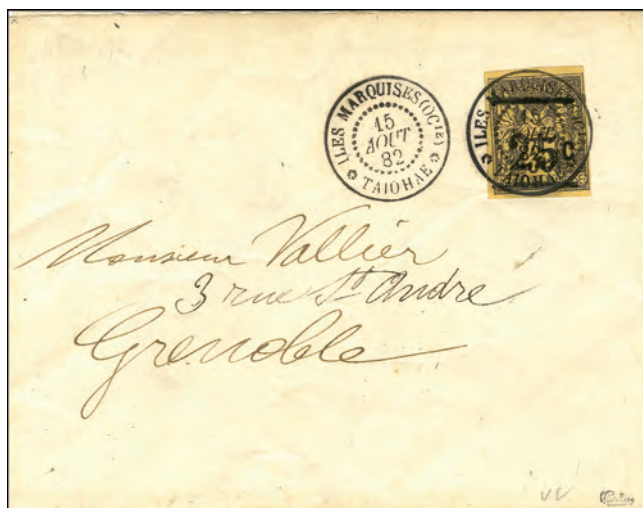 ILES MARQUISES (OCIE)
15
AOUT
82
TAIOHAE
ILES MARQUISES
25 C
TAIOHAE
Monsieur Vallier
3 rue St André
Grenoble